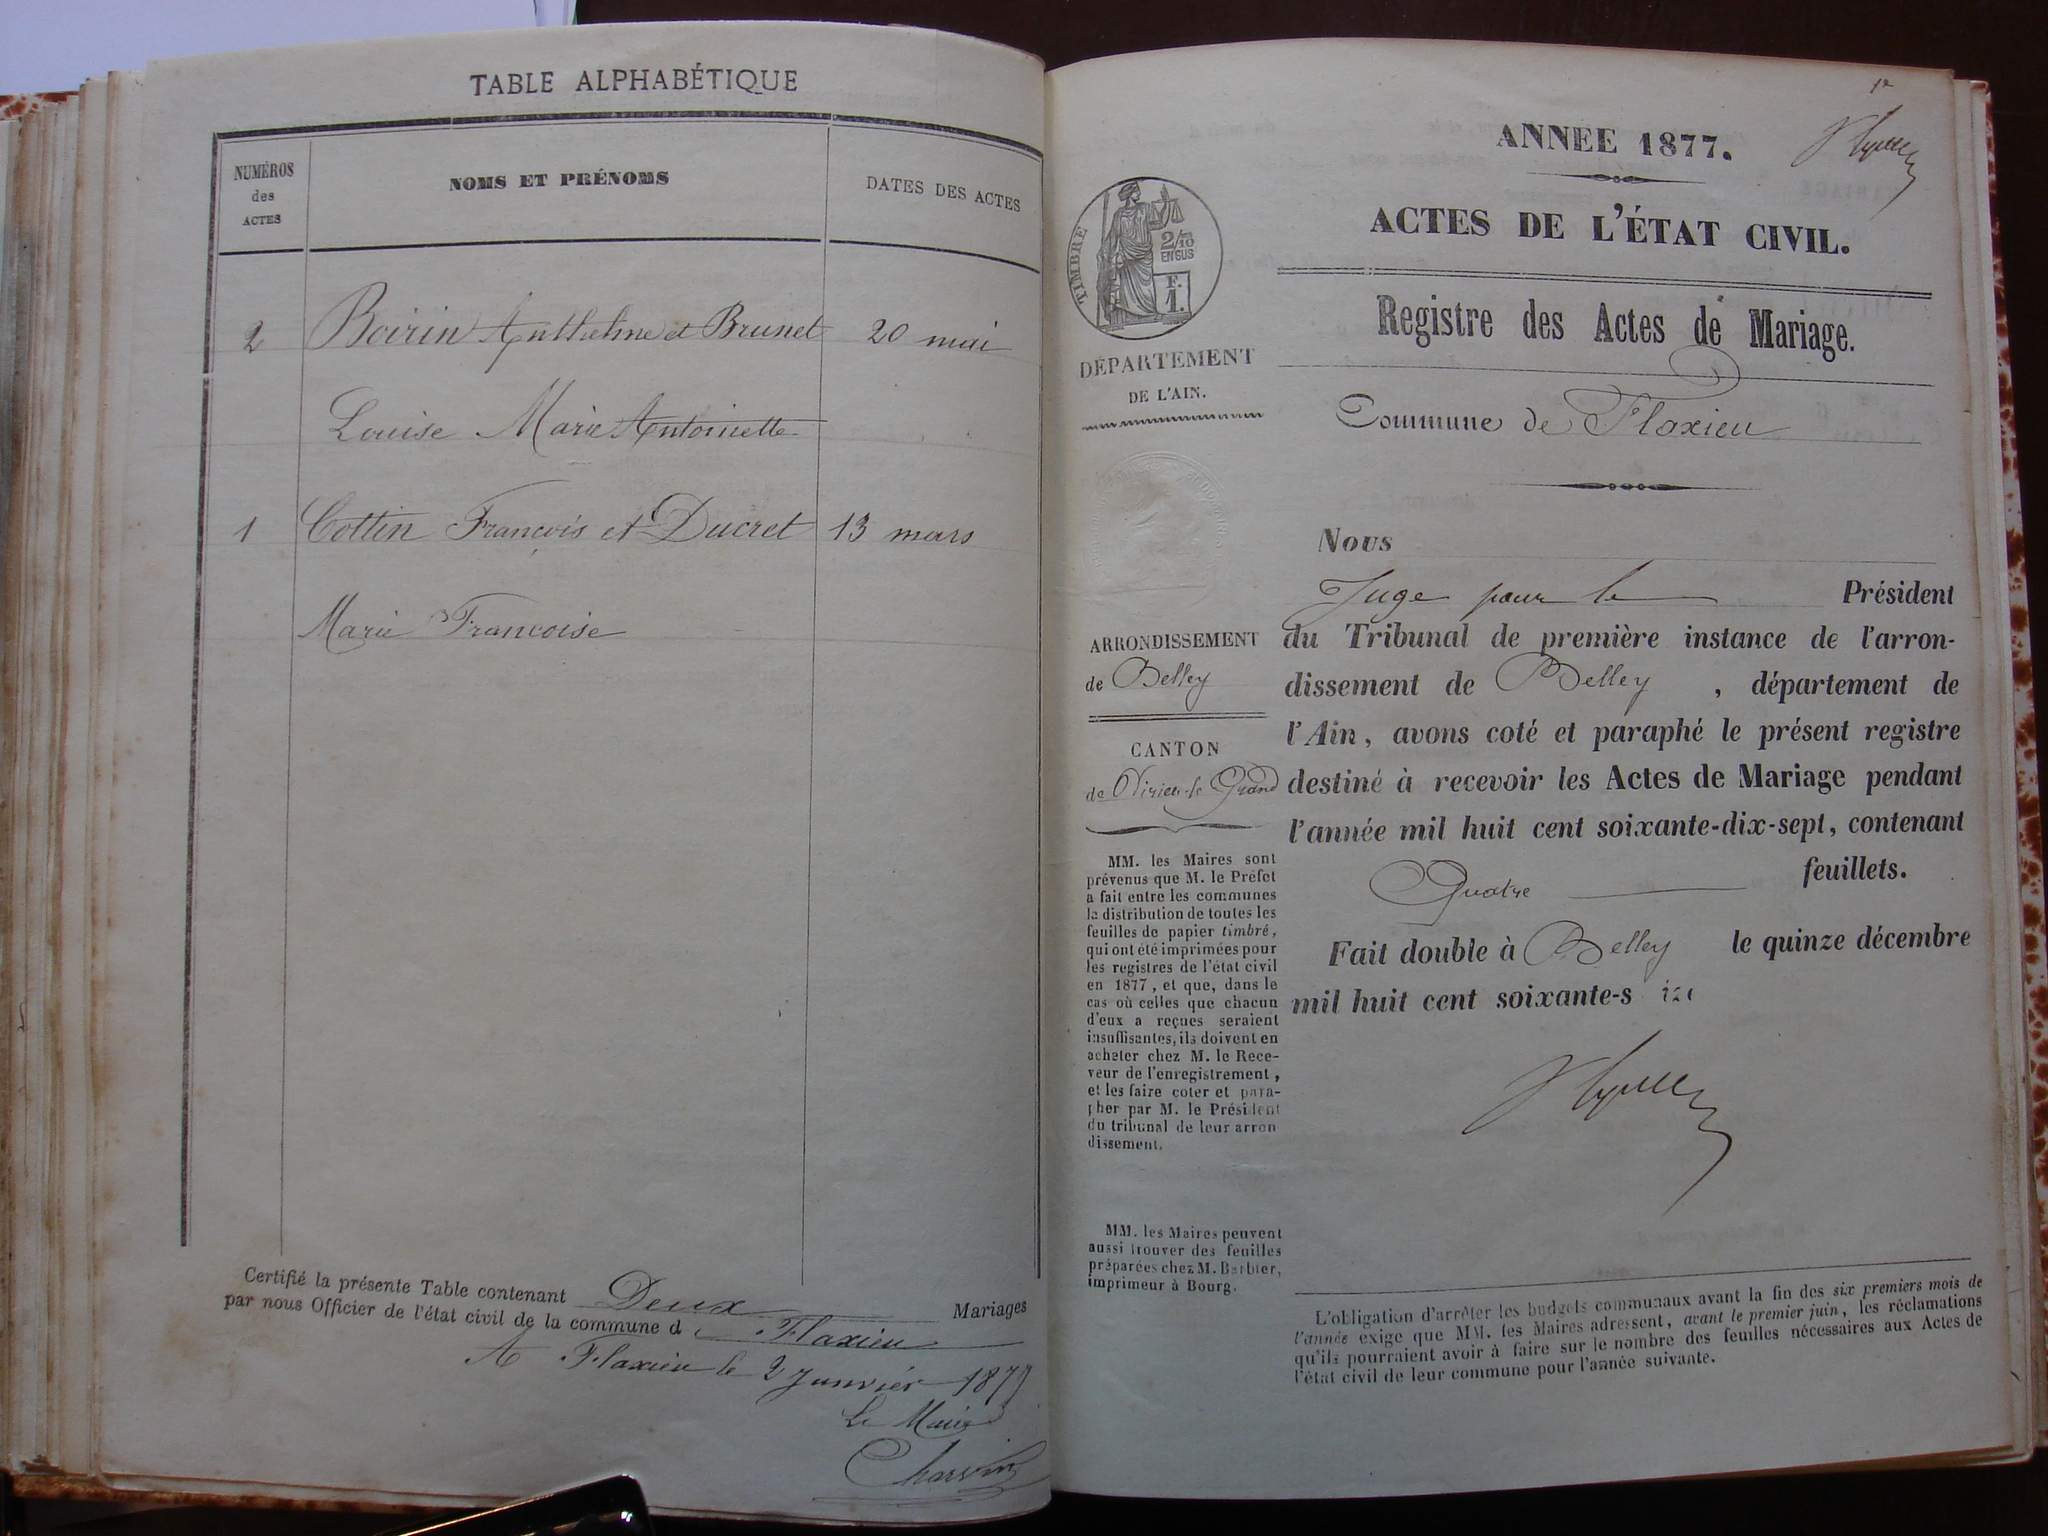 TABLE ALPHABÉTIQUE
NUMÉROS des ACTES
NOMS ET PRÉNOMS
DATES DES ACTES
2 Boirin Anthelme et Brunet 20 mai
Louise Marie Antoinette
1 Cottin François et Ducret 13 mars
Marie Francoise
Certifié la présente Table contenant Deux Mariages
par nous Officier de l'état civil de la commune d Flaxieu
A Flaxieu le 2 Janvier 1877
Le Maire
Charvin
ANNEE 1877.
ACTES DE L'ÉTAT CIVIL.
Registre des Actes de Mariage.
Commune de Flaxieu
TIMBRE
2/10
EN SUS
F.
1.
DÉPARTEMENT
DE L'AIN.
ARRONDISSEMENT
de Belley
CANTON
de Virieu-le Grand
MM. les Maires sont
prévenus que M. le Préfet
a fait entre les communes
la distribution de toutes les
feuilles de papier timbré,
qui ont été imprimées pour
les registres de l'état civil
en 1877, et que, dans le
cas où celles que chacun
d'eux a reçues seraient
insuffisantes, ils doivent en
acheter chez M. le Rece-
veur de l'enregistrement,
et les faire coter et para-
pher par M. le Président
du tribunal de leur arron
dissement.
MM. les Maires peuvent
aussi trouver des feuilles
préparées chez M. Barbier,
imprimeur à Bourg.
Nous
Juge pour le Président
du Tribunal de première instance de l'arron-
dissement de Belley, département de
l'Ain, avons coté et paraphé le présent registre
destiné à recevoir les Actes de Mariage pendant
l'année mil huit cent soixante-dix-sept, contenant
Quatre feuillets.
Fait double à Belley le quinze décembre
mil huit cent soixante-s
L'obligation d'arrêter les budgets communaux avant la fin des six premiers mois de
l'année exige que MM. les Maires adressent, avant le premier juin, les réclamations
qu'ils pourraient avoir à faire sur le nombre des feuilles nécessaires aux Actes de
l'état civil de leur commune pour l'année suivante.